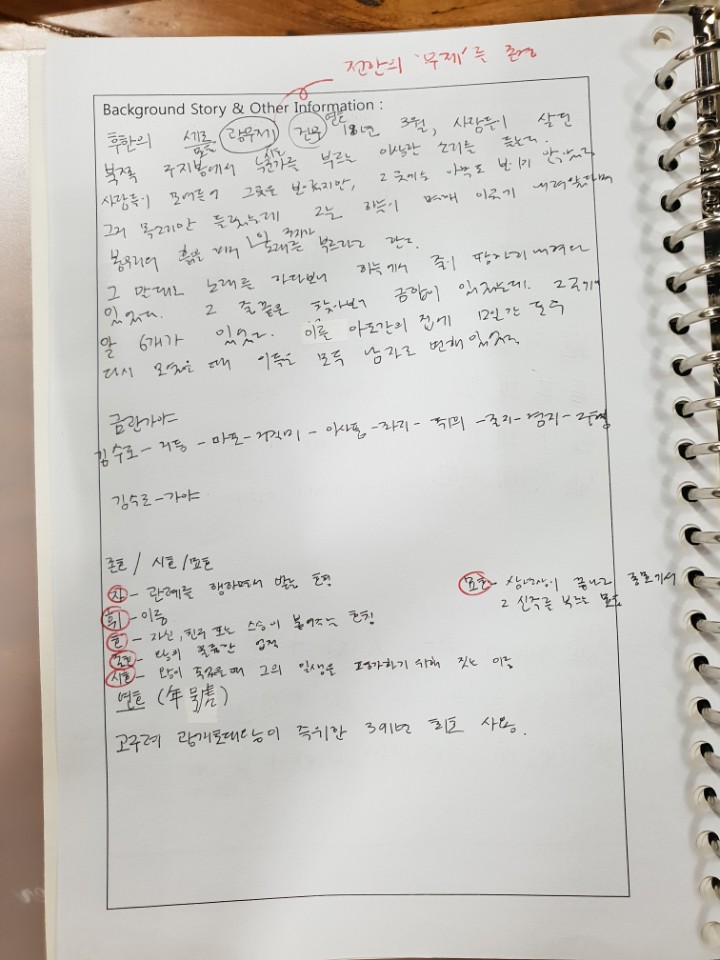 전한의 '무제'를 존경
Background Story & Other Information :
연호
후한의 세조 광무제 건무 18년 3월, 사람들이 살던
묘호 시호
북쪽 구지봉에서 누군가를 부르는 이상한 소리를 듣는다.
사람들이 모여들어 그곳을 보았지만, 그곳에는 아무도 보이지 않았다.
그저 목소리만 들렸는데 그는 하늘이 명해 이곳에 내려왔다며
봉우리의 흙을 파며 노래를 부르라고 한다.
그 말대로 노래를 하다보니 하늘에서 줄이 땅까지 내려와
있었다. 그 줄 끝을 찾아보니 금합이 있었는데. 그 곳에
알 6개가 있었다. 이를 아도간의 집에 12일간 둔 후
다시 모였을 때 이들은 모두 남자로 변해있었다.
금관가야
김수로 - 거등 - 마품 - 거질미 - 이시품 - 좌지 - 취희 - 질지 - 겸지 - 구형
김수로 - 가야
존호 / 시호 / 묘호
자 - 관례를 행하면서 받는 호칭
묘호 - 삼년상이 끝나고 종묘에서
그 신주를 부르는 호칭
휘 - 이름
호 - 자신, 친구 또는 스승이 붙여주는 호칭
존호 - 왕의 훌륭한 업적
시호 - 왕이 죽었을 때 그의 일생을 평가하기 위해 짓는 이름
연호 (年號)
고구려 광개토대왕이 즉위한 391년 최초 사용.